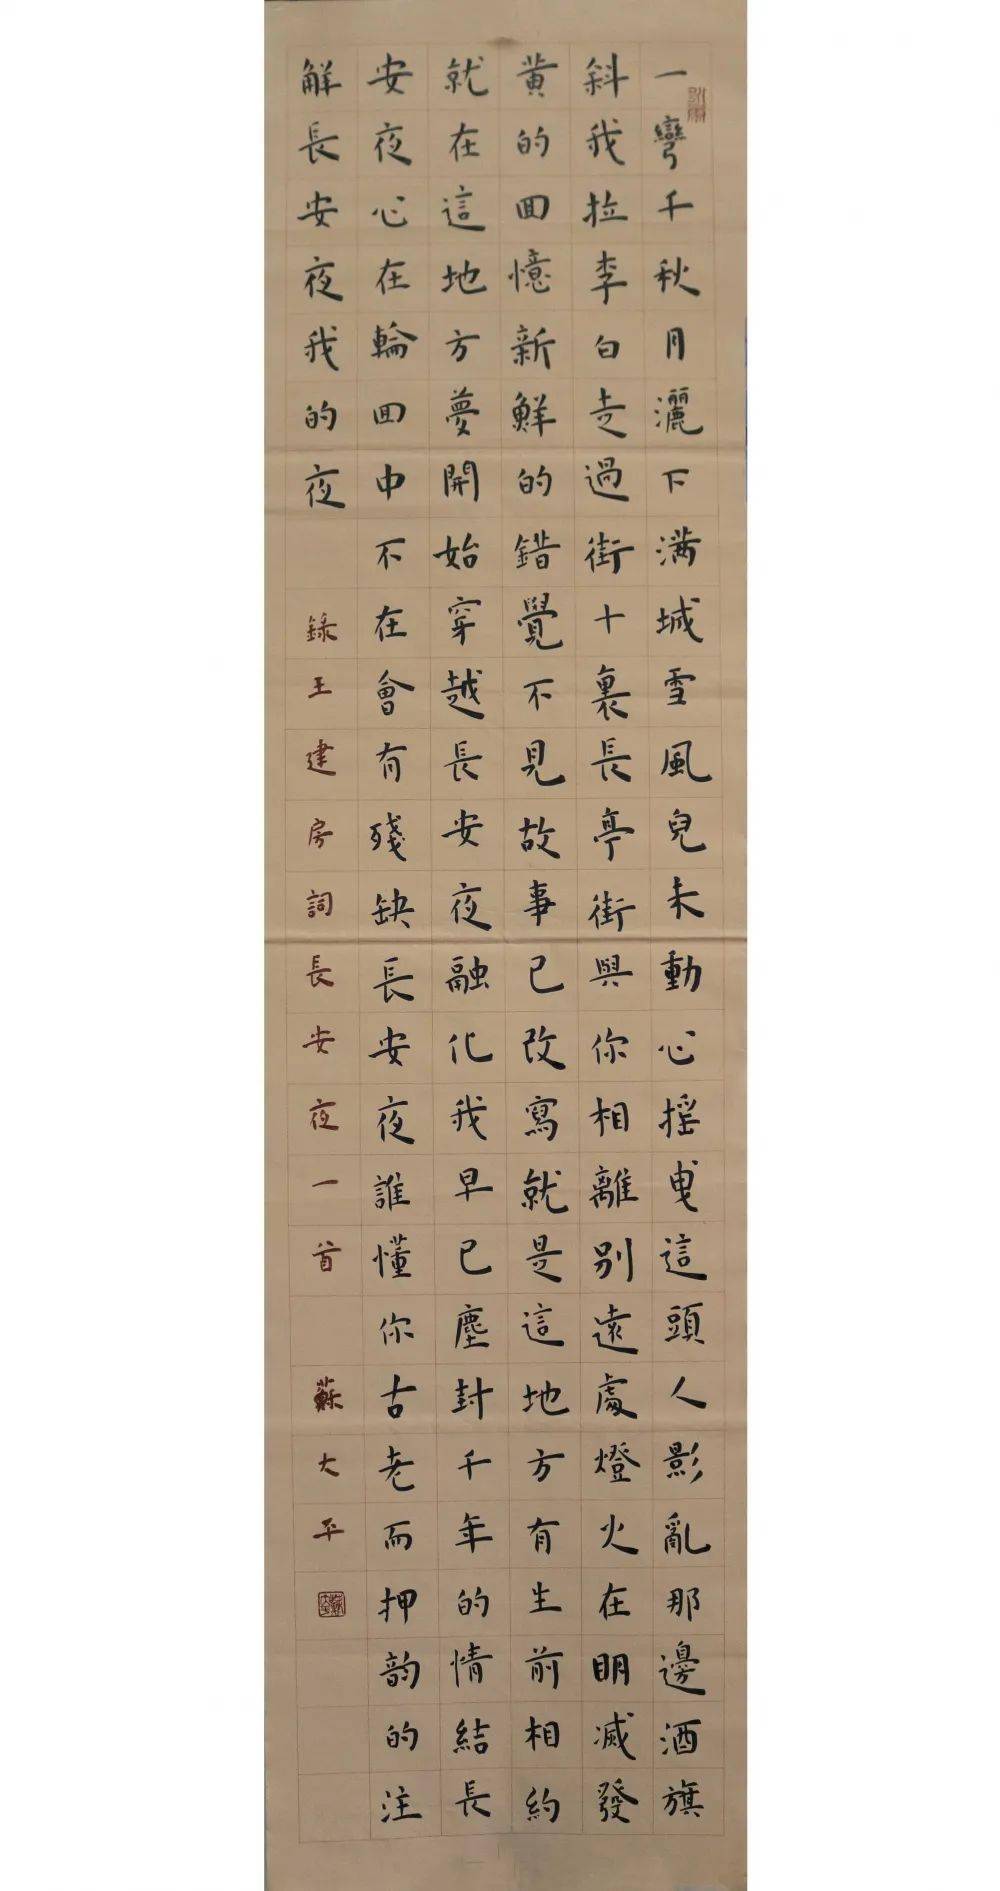 一彎千秋月灑下满城雪風兒未動心摇曵這頭人影亂那邊酒旗
斜我拉李白走過街十裏長亭街與你相離别遠處燈火在明滅發
黄的回憶新鮮的錯覺不見故事已改寫就是這地方有生前相約
就在這地方夢開始穿越長安夜融化我早已塵封千年的情結長
安夜心在輪回中不在會有殘缺長安夜誰懂你古老而押韵的注
解長安夜我的夜
錄王建房詞長安夜一首
蘇大平